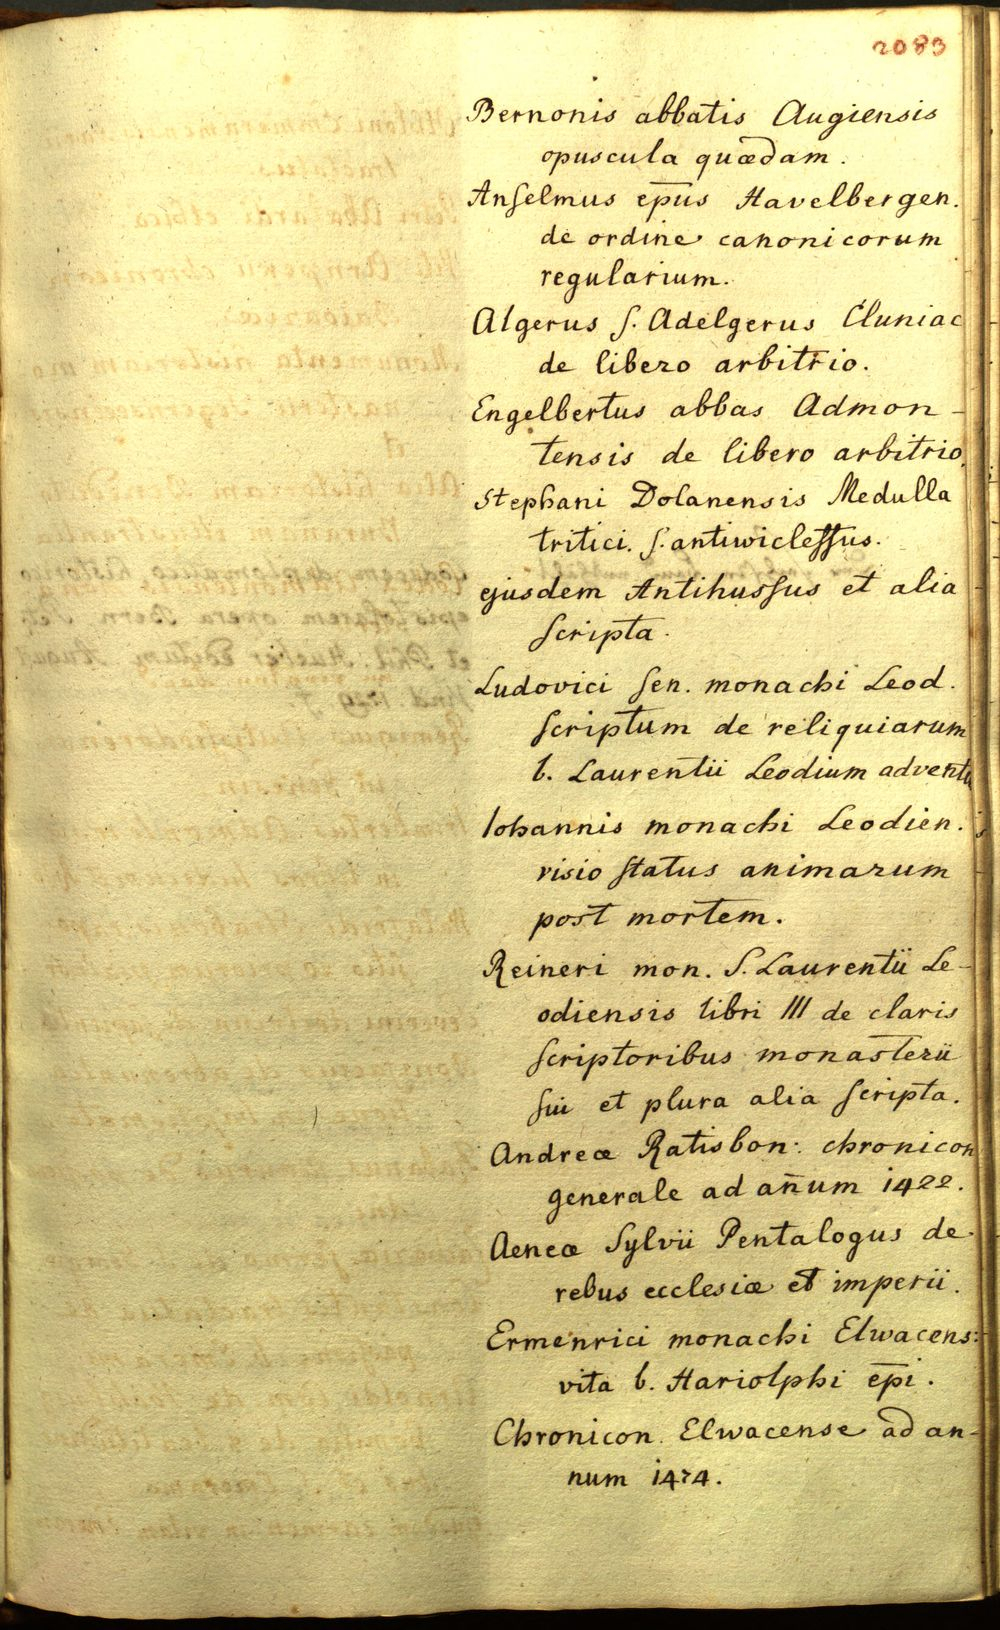 2083
Bernonis abbatis Augiensis
opuscula quædam.
Anselmus ep̅us Havelbergen.
de ordine canonicorum
regularium.
Algerus s. Adelgerus Cluniac
de libero arbitrio.
Engelbertus abbas Admon-
tensis de libero arbitrio.
Stephani Dolanensis Medulla
tritici. s. antiwicleffus.
ejusdem Antihussus et alia
scripta.
Ludovici sen. monachi Leod.
scriptum de reliquiarum
b. Laurentii Leodium adventu
Iohannis monachi Leodien.
visio status animarum
post mortem.
Reineri mon. S. Laurentii Le-
odiensis libri III de claris
scriptoribus monasterii
sui et plura alia scripta.
Andreæ Ratisbon: chronicon
generale ad an̄um 1422.
Aeneæ Sylvii Pentalogus de
rebus ecclesiæ et imperii.
Ermenrici monachi Elwacens:
vita b. Hariolphi ep̅i.
Chronicon Elwacense ad an-
num 1474.